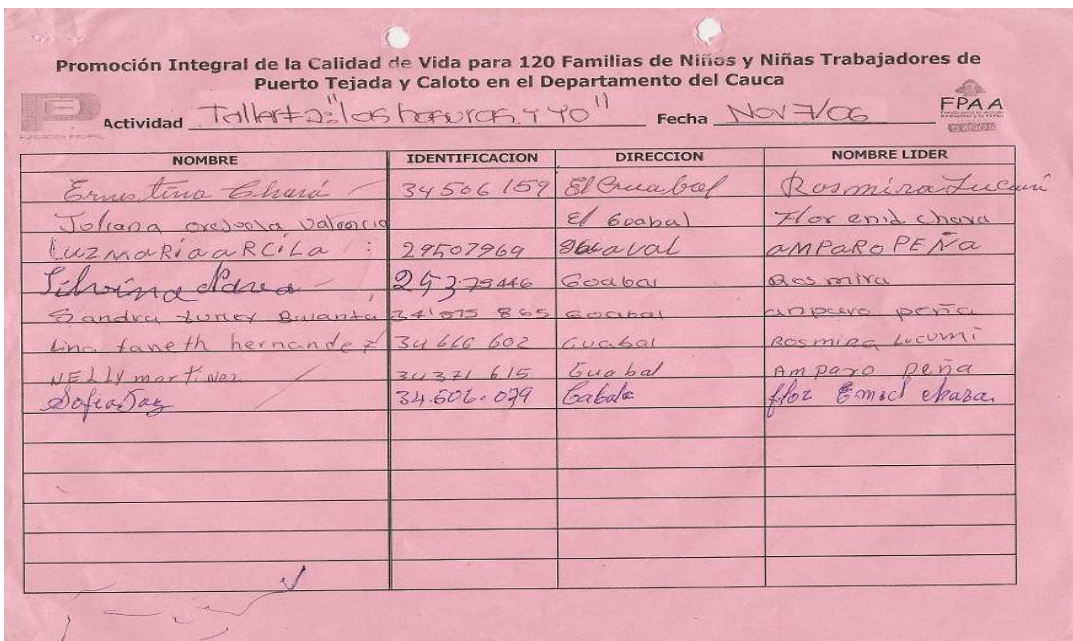 Promoción Integral de la Calidad de Vida para 120 Familias de Niños y Niñas Trabajadores de
Puerto Tejada y Caloto en el Departamento del Cauca
Actividad "las basuras y yo" Fecha Nov 7/06
FPAA
5 AÑOS
NOMBRE IDENTIFICACION DIRECCION NOMBRE LIDER
Ernestina Chará 34506159 El Rosmira Lucumi
Valencia El Goabal Flor enid chara
LUZ MaRía aRCiLa 29507969 aMPaRO PEÑa
25379446 Goabal Rosmira
Sandra Goabal anparo peña
Lina Yaneth hernandez 34 666 602 Guabal Rosmira Lucumi
NELLY martinez 34371 615 Guabal Amparo peña
Sofia 34.606.079 flor chara.